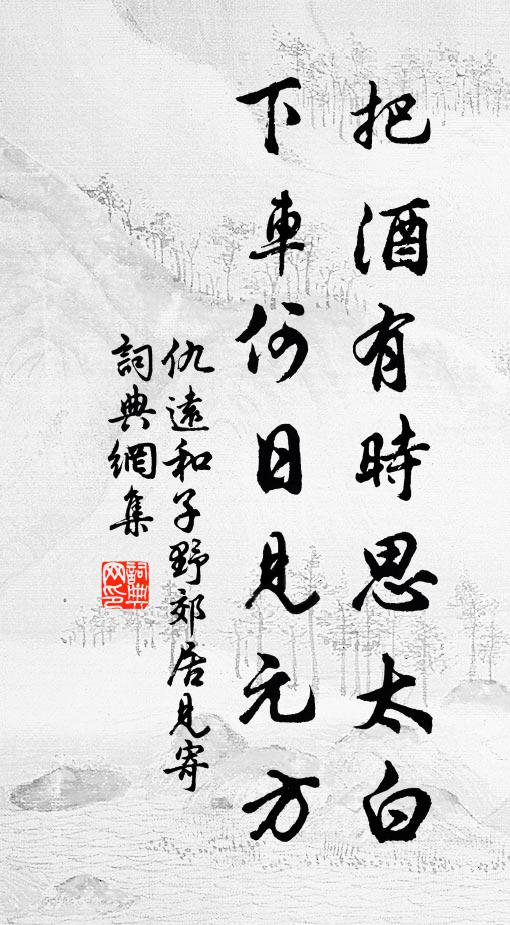 把酒有時思太白
下車何日見元方
仇遠和子野郊居見寄
詞典網集
詞典網印